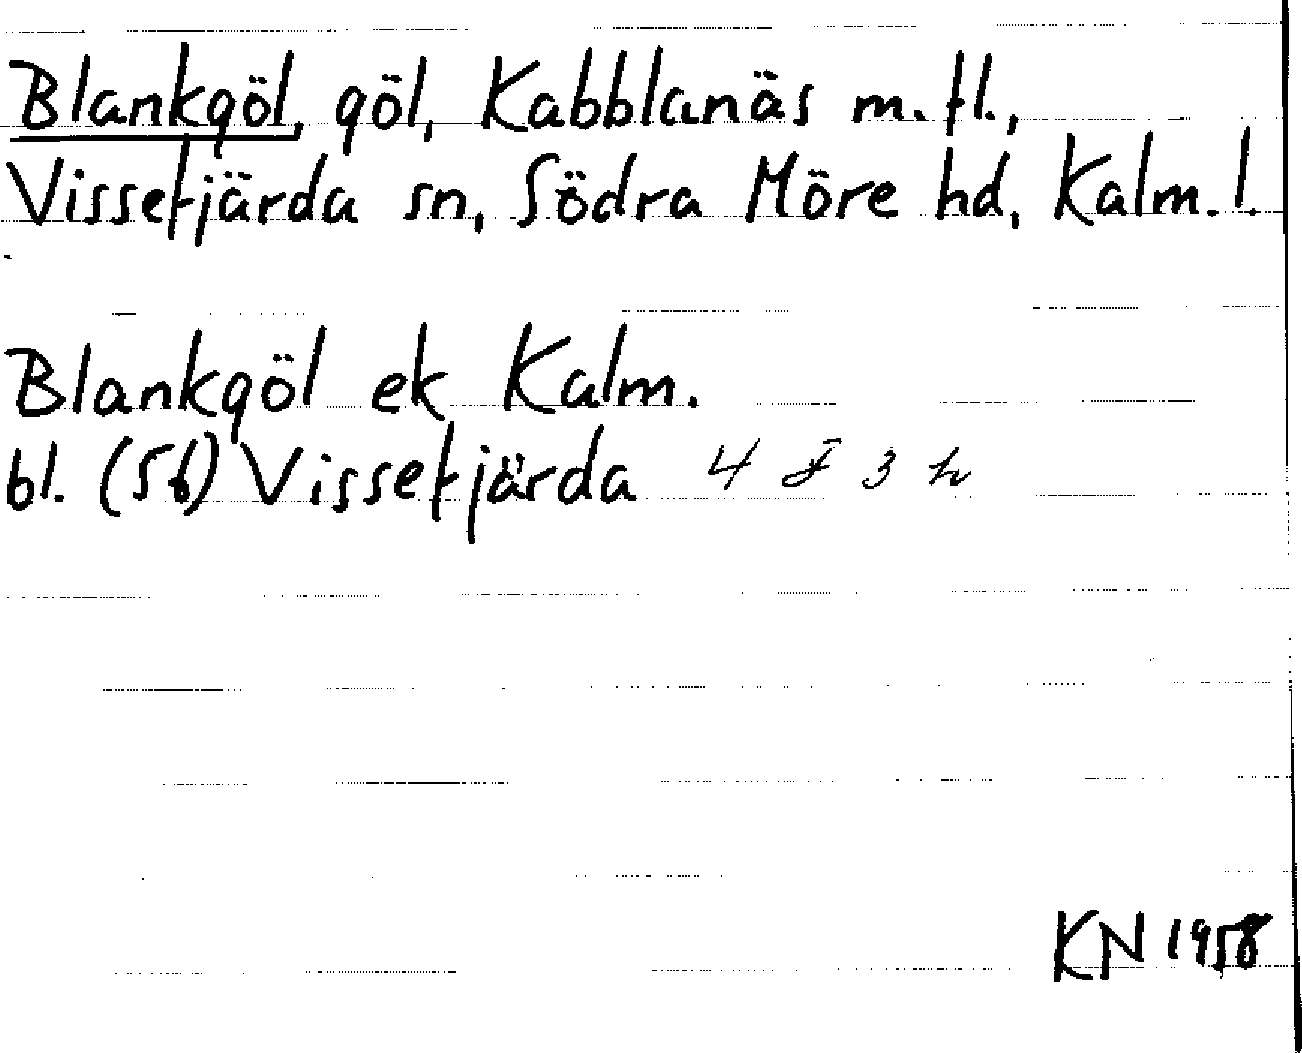 Blankgöl, göl, Kabblanäs m.fl.,
Vissefjärda sn, Södra Möre hd, Kalm. l.
Blankgöl ek Kalm.
bl. (56) Vissefjärda 4 F 3 h
KN 1958